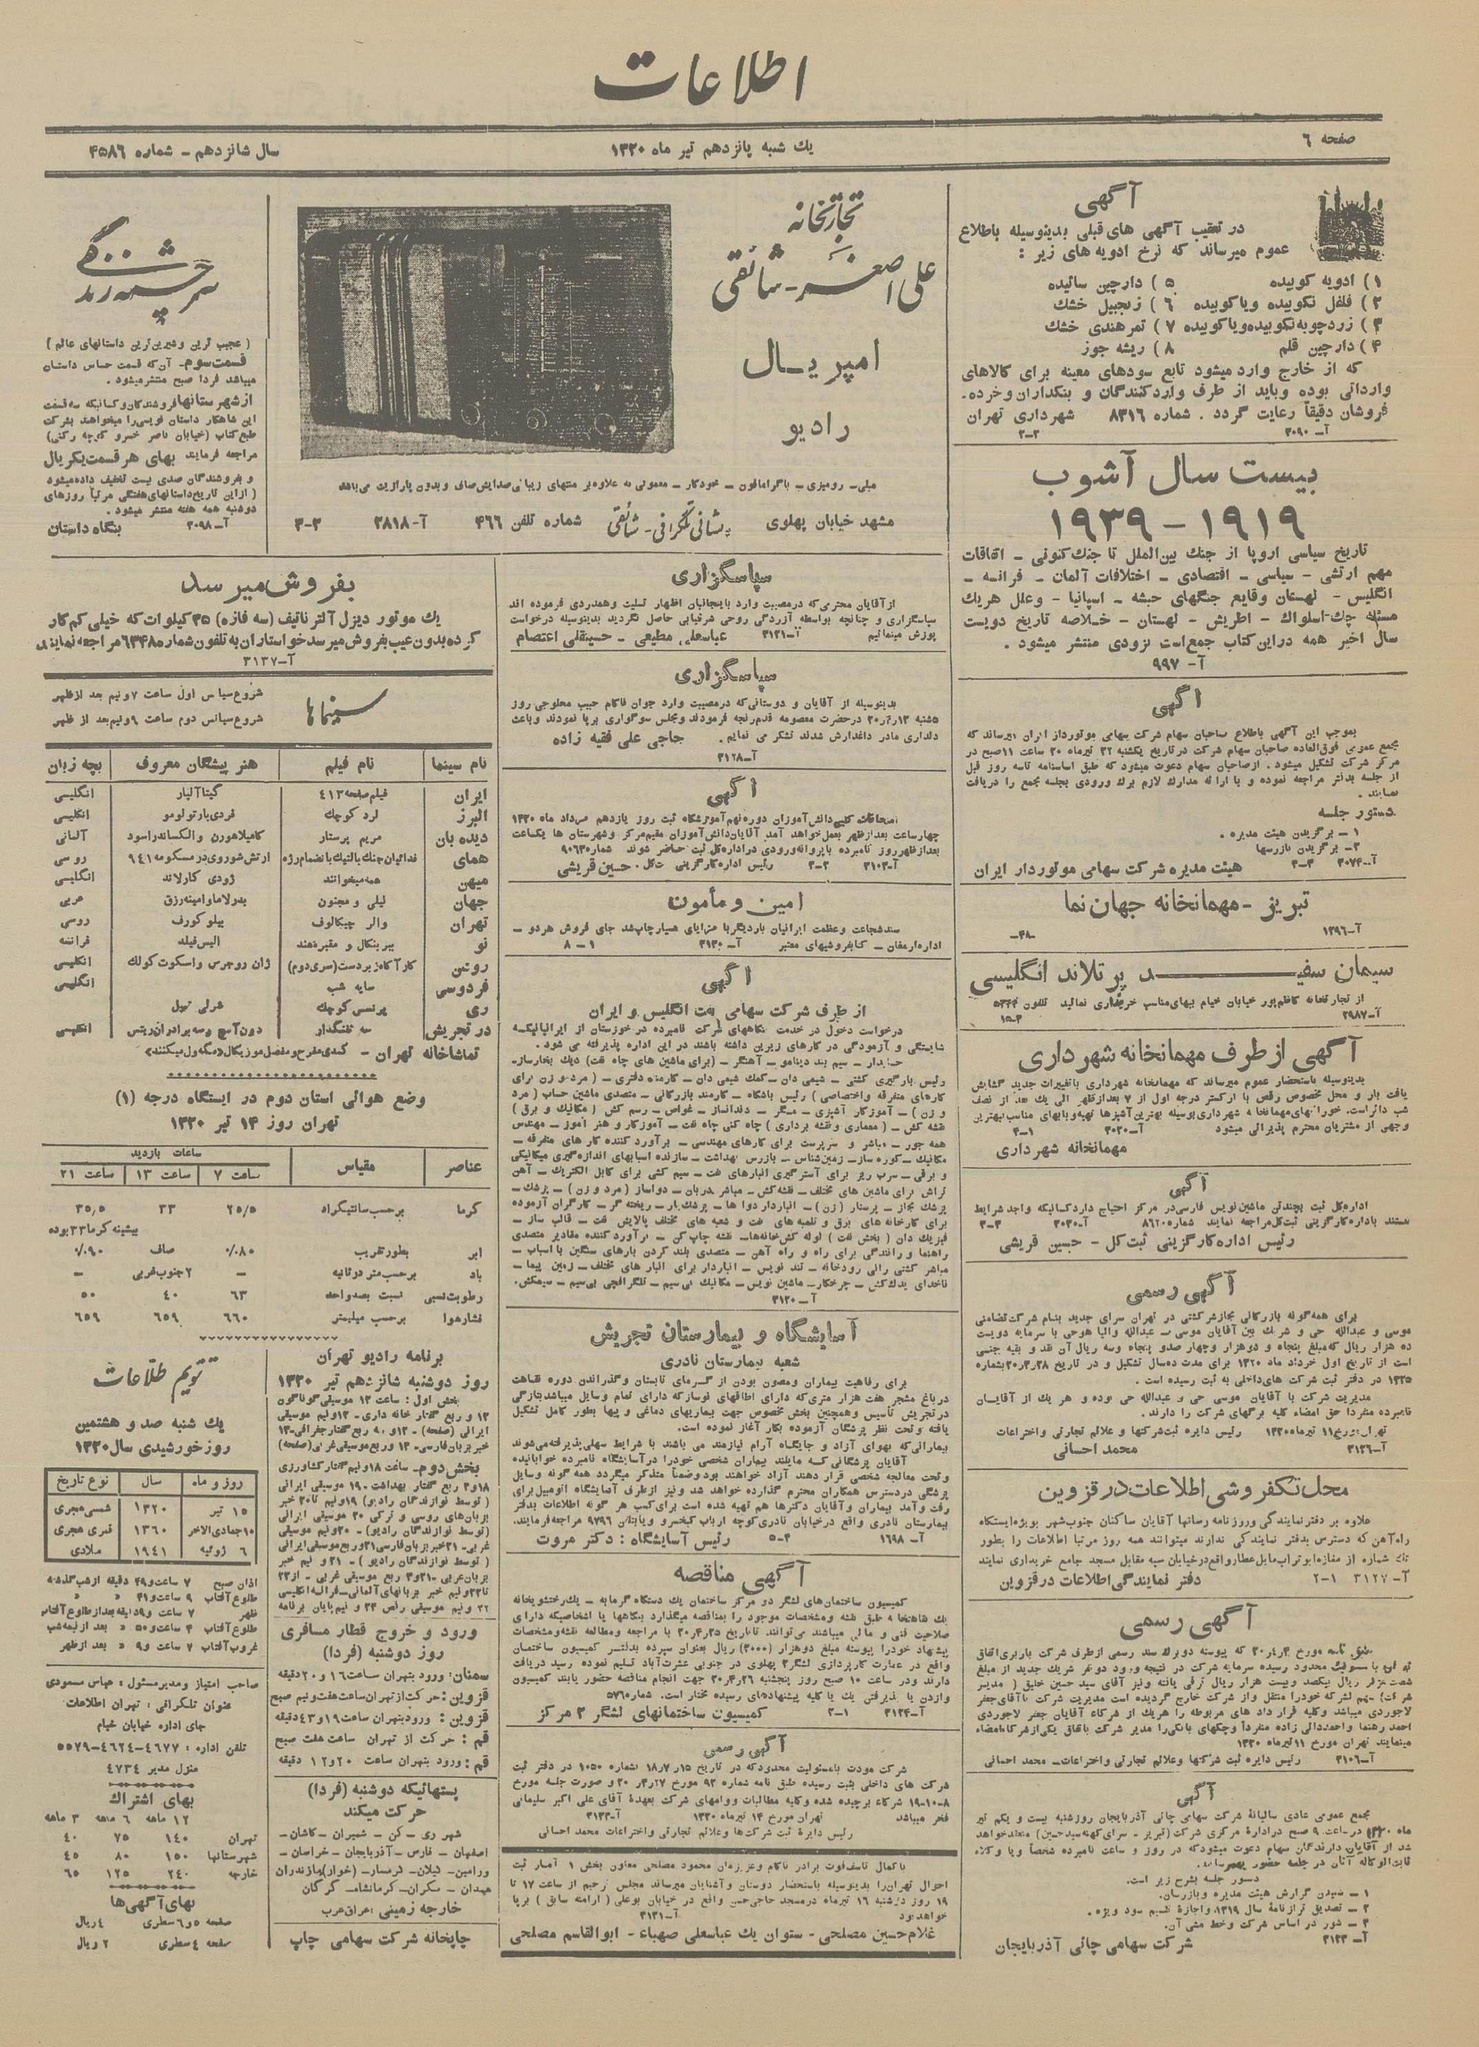 اطلاعات
صفحه ۶
یك شنبه پانزدهم تیر ماه ۱۳۲۰
سال شانزدهم - شماره ۴۵۸۶
آگهی
در تعقیب آگهی های قبلی بدینوسیله باطلاع
عموم میرساند که نرخ ادویه های زیر :
۱) ادویه کوبیده ۵) دارچین سائیده
۲) فلفل نکوبیده ویاکوبیده ۶) زنجبیل خشك
۳) زردچوبه نکوبیده ویاکوبیده ۷) تمرهندی خشك
۴) دارچین قلم ۸) ریشه جوز
که از خارج وارد میشود تابع سودهای معینه برای کالاهای
وارداتی بوده وباید از طرف واردکنندگان و بنکداران وخرده-
فروشان دقیقاً رعایت گردد. شماره ۸۳۱۶ شهرداری تهران
آ-۳۰۹۰ ۲-۲
بیست سال آشوب
۱۹۱۹ - ۱۹۳۹
تاریخ سیاسی اروپا از جنك بین‌الملل تا جنك کنونی - اتفاقات
مهم ارتشی - سیاسی - اقتصادی - اختلافات آلمان - فرانسه -
انگلیس - لهستان وقایع جنگهای حبشه - اسپانیا - وعلل هریك
مسئله چك اسلواك - اطریش - لهستان - خلاصه تاریخ دویست
سال اخیر همه دراین کتاب جمع‌است بزودی منتشر میشود .
آ- ۹۹۷
آگهی
بموجب این آگهی باطلاع صاحبان سهام شرکت سهامی موتوردار ایران میرساند که
مجمع عمومی فوق‌العاده صاحبان سهام شرکت در تاریخ یکشنبه ۲۲ تیرماه ۲۰ ساعت ۱۱صبح در
مرکز شرکت تشکیل میشود . ازصاحبان سهام دعوت میشود که طبق اساسنامه تاسه روز قبل
از جلسه بدفتر مراجعه نموده و با ارائه مدارك لازم برك ورودی بجلسه مجمع را دریافت
نمایند .
دستور جلسه
۱- برگزیدن هیئت مدیره .
۲- برگزیدن بازرسها
آ-۳۰۷۴ ۲-۲ هیئت مدیره شرکت سهامی موتوردار ایران
تبریز - مهمانخانه جهان نما
آ-۱۳۹۶ -۴۸
سیمان سفید پرتلاند انگلیسی
از تجارتخانه کاظم‌پور خیابان خیام ببهای مناسب خریداری نمائید تلفون ۵۳۴۴
آ-۲۹۸۷ ۱۵-۴
آگهی از طرف مهمانخانه شهرداری
بدینوسیله باستحضار عموم میرساند که مهمانخانه شهرداری باتغییرات جدید گشایش
یافت بار و محل مخصوص رقص با ارکستر درجه اول از ۷ بعدازظهر الی یك بعد از نصف
شب دائر است. خوراکهای مهمانخانه شهرداری بوسیله بهترین آشپزها تهیه و بابهای مناسب بهترین
وجهی از مشتریان محترم پذیرائی میشود آ-۳۰۲۰ ۴-۱
مهمانخانه شهرداری
آگهی
اداره کل ثبت بچندتن ماشین نویس فارسی در مرکز احتیاج دارد کسانیکه واجد شرایط
هستند باداره کارگزینی ثبت کل مراجعه نمایند شماره ۸۶۲۰ آ-۳۰۳۰ ۳-۳
رئیس اداره کارگزینی ثبت کل - حسین قریشی
آگهی رسمی
برای همه گونه بازرگانی مجازشرکتی در تهران سرای جدید بنام شرکت تضامنی
موسی و عبدالله حی و شریك بین آقایان موسی عبدالله والیا هوحی با سرمایه دویست
ده هزار ریال که مبلغ پنجاه و دوهزار وچهار صدو پنجاه وسه ریال آن نقد و بقیه جنسی
است از تاریخ اول خرداد ماه ۱۳۲۰ برای مدت ده‌سال تشکیل و در تاریخ ۲۸ر۳ر۲۰ بشماره
۱۳۳۵ در دفتر ثبت شرکت های‌داخلی به ثبت رسیده است .
مدیریت شرکت با آقایان موسی حی و عبدالله حی بوده و هر یك از آقایان
نامبرده منفردا حق امضاء کلیه برگهای شرکت را دارند .
تهران بتاریخ ۱۱ تیرماه ۱۳۲۰ رئیس دایره ثبت‌شرکتها و علائم تجارتی واختراعات
آ-۳۱۲۶ محمد احسانی
محل تکفروشی اطلاعات در قزوین
علاوه بر دفتر نمایندگی وروزنامه رسانها آقایان ساکنان جنوب‌شهر بویژه‌ایستگاه
راه‌آهن که دسترس بدفتر نمایندگی ندارند میتوانند همه روز مرتبا اطلاعات را بطور
تك شماره از مغازه‌ابوتراب مایل عطار واقع درخیابان سپه مقابل مسجد جامع خریداری نمایند
آ- ۳۱۲۷ ۲-۱ دفتر نمایندگی اطلاعات در قزوین
آگهی رسمی
طبق نامه مورخ ۲ر۴ر۲۰ که پیوسته دوبرك سند رسمی ازطرف شرکت باربری اتفاق
با مسئولیت محدود رسیده سرمایه شرکت در نتیجه ورود دونفر شریك جدید از مبلغ
شصت هزار ریال بیکصد وبیست هزار ریال ترقی یافته ونیز آقای سید حسین خلیق ( مدیر
شرکت) سهم لشرکه خودرا منتقل واز شرکت خارج گردیده است مدیریت شرکت باآقای جعفر
لاجوردی میباشد وکلیه قرار داد های مربوطه را هریك از شرکاء آقایان جعفر لاجوردی
احمد رهنما واحمددالی زاده منفرداً وچکهای بانکی‌را مدیر شرکت باتفاق یکی‌ازشرکاءامضاء
مینمایند تهران مورخ ۱۱ تیرماه ۱۳۲۰
آ-۳۱۰۶ رئیس دایره ثبت شرکتها وعلائم تجارتی واختراعات- محمد احسانی
آگهی
مجمع عمومی عادی سالیانه شرکت سهامی چائی آذربایجان روزشنبه بیست و یکم تیر
ماه ۱۳۲۰ درساعت ۹ صبح درادارهٔ مرکزی شرکت (تبریز - سرای کهنه سیدحسین) منعقدخواهد
شد از آقایان دارندگان سهام دعوت میشود که در روز و ساعت نامبرده شخصاً ویا وکلاء
ثابت‌الوکاله آنان در جلسه حضور بهمرسانند.
دستور جلسه بشرح زیر است.
۱- شنیدن گزارش هیئت مدیره وبازرسان.
۲- تصدیق ترازنامهٔ سال ۱۳۱۹ واجازهٔ تقسیم سود ویژه .
۳- شور در اساس شرکت وخط مشی آن.
آ- ۳۱۲۳ شرکت سهامی چائی آذربایجان
تجارتخانه
علی اصغر - شائقی
امپریال
رادیو
مبلی- رومیزی - باگرامافون - خودکار - معمولی به علاوه بر منتهای زیبائی صدایش صاف وبدون پارازیت می‌باشد
مشهد خیابان پهلوی شماره تلفن ۴۶۶ نشانی تلگرافی - شائقی آ-۲۸۱۸ ۳-۳
سپاسگزاری
از آقایان محترمی که در مصیبت وارد باینجانبان اظهار تسلیت وهمدردی فرموده اند
سپاسگزاری و چنانچه بواسطه آزردگی روحی شرفیابی حاصل نگردید بدینوسیله درخواست
پوزش مینمائیم آ-۳۱۲۱ عباسعلی مطیعی - حسینقلی اعتصام
سپاسگزاری
بدینوسیله از آقایان و دوستانی که درمصیبت وارد جوان ناکام حبیب محلوجی روز
۵شنبه ۱۲ر۴ر۲۰ درحضرت معصومه قدم‌رنجه فرمودند ومجلس سوگواری برپا نمودند وباعث
دلداری مادر داغدارش شدند تشکر می نمایم . حاجی علی فقیه زاده
آ-۳۱۲۸
آگهی
امتحانات کتبی دانش‌آموزان دوره نهم آموزشگاه ثبت روز یازدهم مرداد ماه ۱۳۲۰
چهارساعت بعدازظهر بعمل خواهد آمد آقایان دانش‌آموزان مقیم مرکز وشهرستان ها یکساعت
بعدازظهر روز نامبرده باپروانه ورودی دراداره کل ثبت حاضر شوند شماره ۹۰۶۳
آ-۳۱۰۳ ۲-۲ رئیس اداره کارگزینی ثبت کل. حسین قریشی
امین و مأمون
سند شجاعت وعظمت ایرانیان باردیگر با مزایای بسیار چاپ شد جای فروش هردو -
اداره ارمغان - کتابفروشیهای معتبر آ-۳۱۳۰ ۸-۱
آگهی
از طرف شرکت سهامی نفت انگلیس و ایران
درخواست دخول در خدمت بنگاههای شرکت نامبرده در خوزستان از ایرانیانیکه
شایستگی و آزمودگی در کارهای زیرین داشته باشند در این اداره پذیرفته می شود .
حسابدار- سیم بند دینامو - آهنگر - (برای ماشین های چاه نفت) دیك بخارساز-
رئیس بارگیری کشتی - شیمی دان - کمك شیمی دان - کارمند دفتری - ( مرد و زن برای
کارهای متفرقه واختصاصی) رئیس باشگاه - کارمند بازرگانی - متصدی ماشین حساب ( مرد
و زن) - آموزگار آشپزی - مسگر - دندانساز - غواص - رسم کش ( مکانیك و برق )
نقشه کش - (معماری ونقشه برداری ) چاه کنی چاه نفت - آموزگار و هنر آموز - مهندس
همه جور - مباشر و سرپرست برای کارهای مهندسی - برآورد کننده کار های متفرقه -
مکانیك - کوره ساز- زمین‌شناس - بازرس بهداشت - سازنده اسبابهای اندازه‌گیری میکانیکی
و برقی - سرب ریز برای آسترگیری انبارهای نفت - سیم کشی برای کابل الکتریك - آهن
تراش برای ماشین های مختلف - نقشه‌کش - مباشر دربان - دواساز (مرد و زن) - پزشك -
پزشك مجاز - پرستار (زن) - انباردار دوا ها - پزشك‌یار - ریخته گر - کارگران آزموده
برای کارخانه های برق و تلمبه های نفت و شعبه های مختلف پالایش نفت - قالب ساز -
فیزیك دان ( بخش نفت ) لوله کش‌خانه‌ها- نقشه چاپ‌کن - برآورد کننده مقادیر متصدی
راهنما و رانندگی برای راه و راه آهن - متصدی بلند کردن بارهای سنگین با اسباب -
مباشر کشتی رانی رودخانه - تند نویس - انباردار برای انبار های مختلف - زمین پیما -
ناخدای یدك‌کش - چرخکار- ماشین نویس - مکانیك بی‌سیم - تلگرافچی بی‌سیم - سیمکش.
آ-۳۱۲۰
آسایشگاه و بیمارستان تجریش
شعبه بیمارستان نادری
برای رفاهیت بیماران ومصون بودن از گرمای تابستان وگذراندن دوره نقاهت
درباغ مشجر هفت هزار متری‌که دارای اطاقهای نوسازکه دارای تمام وسایل میباشدبتازگی
درتجریش تأسیس وهمچنین بخش مخصوص جهت بیماریهای دماغی و پیها بطور کامل تشکیل
یافته وتحت نظر پزشکان آزموده بکار آغاز نموده است.
بیمارانی که بهوای آزاد و جایگاه آرام نیازمند می باشند با شرایط سهلی پذیرفته‌میشوند
آقایان پزشگانی که مایلند بیماران شخصی خودرا درآسایشگاه نامبرده خوابانیده
وتحت معالجه شخصی قرار دهند آزاد خواهند بود وضمناً متذکر میگردد همه گونه وسایل
پزشگی دردسترس همکاران محترم گذارده خواهد شد ونیز ازطرف آسایشگاه اتومبیل برای
رفت وآمد بیماران وآقایان دکترها هم تهیه شده است برای‌کسب هر گونه اطلاعات بدفتر
بیمارستان نادری واقع درخیابان نادری‌کوچه ارباب کیخسرو و یا بتلفن ۹۷۹۶ مراجعه‌فرمایند.
آ- ۱۶۹۸ ۵-۴ رئیس آسایشگاه : دکتر مروت
آگهی مناقصه
کمیسیون ساختمان‌های لشگر دو مرکز ساختمان یك دستگاه گرمابه - یك‌رختشویخانه
یك تابخانه طبق نقشه ومشخصات موجود را بمناقصه میگذارد بنگاهها یا اشخاصیکه دارای
صلاحیت فنی و مالی میباشند می‌توانند تاتاریخ ۲۵ر۴ر۲۰ با مراجعه ومطالعه نقشه‌ومشخصات
پیشنهاد خودرا پیوسته مبلغ دوهزار (۲۰۰۰) ریال بعنوان سپرده بدفتر کمیسیون ساختمان
واقع در عمارت کارپردازی لشگر۲ پهلوی در جنوبی عشرت‌آباد تسلیم نموده رسید دریافت
دارند ودر ساعت ۱۰ صبح روز پنجشنبه ۲۶ر۴ر۲۰ جهت انجام مناقصه حضور یابند کمیسیون
وازدن یا پذیرفتن یك یا کلیه پیشنهادهای رسیده مختار است. شماره ۵۷۶
آ-۳۱۲۴ ۲-۱ کمیسیون ساختمانهای لشگر ۲ مرکز
آگهی رسمی
شرکت مودت بامسئولیت محدودکه در تاریخ ۱۵ر۷ر۱۸ بشماره ۱۰۵۰ در دفتر ثبت
شرکت های داخلی بثبت رسیده طبق نامه شماره ۹۲ مورخ ۲۷ر۳ر۲۰ و صورت جلسه مورخ
۸-۱۰-۱۹ شرکاء برچیده شده وکلیه مطالبات ووامهای شرکت بعهدهٔ آقای علی اکبر سلیمانی
فخر میباشد تهران مورخ ۱۴ تیرماه ۱۳۲۰ آ-۳۱۳۳
رئیس دایرهٔ ثبت شرکت‌ها وعلائم تجارتی واختراعات محمد احسانی
باکمال تاسف‌فوت برادر ناکام وعزیزمان محمود مصلحی معاون بخش ۱ آمار ثبت
احوال تهران‌را بدینوسیله باستحضار دوستان وآشنایان میرساند مجلس ترحیم از ساعت ۱۷ تا
۱۹ روز دوشنبه ۱۶ تیرماه درمسجد حاجی‌حسن واقع در خیابان بوعلی ( ارامنه سابق ) برپا
خواهد بود آ-۳۱۳۱
غلامحسین مصلحی - ستوان یك عباسعلی صهباء - ابوالقاسم مصلحی
سرچشمه زندگی
( عجیب ترین وشیرین‌ترین داستانهای عالم )
قسمت سوم- آن‌که قسمت حساس داستان
میباشد فردا صبح منتشر میشود .
از شهرستانها فروشندگان وکسانیکه سه قسمت
این شاهکار داستان نویسی‌را میخواهند بشرکت
طبع کتاب (خیابان ناصر خسرو کوچه رکنی)
مراجعه فرمایند بهای هر قسمت یکریال
و بفروشندگان صدی بیست تخفیف داده‌میشود
( از این تاریخ داستانهای‌هفتگی مرتباً روزهای
دوشنبه همه هفته منتشر میشود .
آ-۳۰۹۸ بنگاه داستان
بفروش میرسد
یك موتور دیزل آلترناتیف (سه فازه) ۳۵ کیلوات که خیلی کم‌کار
کرده‌بدون‌عیب بفروش میرسد خواستاران به تلفون شماره ۶۳۴۸ مراجعه نمایند
آ-۳۱۳۷
سینماها
شروع سیانس اول ساعت ۷ونیم بعد ازظهر
شروع سیانس دوم ساعت ۹ونیم بعد از ظهر
نام سینما نام فیلم هنر پیشگان معروف بچه زبان
ایران فیلم صفحه ۴۱۳ گیتاآلپار انگلیسی
البرز لرد کوچك فردی بارتولومو انگلیسی
دیده بان مریم پرستار کامیلاهورن والکساندراسود آلمانی
همای فدائیان جنك بالتیك باانضمام رژه ارتش شوروی در مسکو مه ۹۴۱ روسی
میهن همه میخوانند ژودی کارلاند انگلیسی
جهان لیلی و مجنون بدولاماوامینه‌رزق عربی
تهران والر چیکالوف بیلوکورف روسی
نو ببر بنگال و مقبره هند الیس‌فیلد فرانسه
روشن کارآگاه زبردست(سری‌دوم) ژان روجرس واسکوت کولك انگلیسی
فردوسی سایه شب انگلیسی
ری پرنسس کوچك شرلی تمپل
در تجریش سه تفنگدار دون‌آمچی وسه برادران ریتس انگلیسی
تماشاخانه تهران - کمدی مفرح و مفصل موزیکال «مکه ول میکنند»
وضع هوائی استان دوم در ایستگاه درجه (۱)
تهران روز ۱۴ تیر ۱۳۲۰
عناصر مقیاس ساعات بازدید
ساعت ۷ ساعت ۱۳ ساعت ۲۱
گرما برحسب سانتیگراد ۲۵/۵ ۳۳ ۳۵,۵
بیشینه گرما ۳۳بوده
ابر بطورتقریب ۰/۰۸۰ صاف ۰/۰۹۰
باد برحسب متر در ثانیه - ۲جنوب‌غربی -
رطوبت نسبی نسبت بصدواحد ۶۳ ۴۰ ۵۰
فشار هوا برحسب میلیمتر ۶۶۰ ۶۵۹ ۶۵۹
برنامه رادیو تهران
روز دوشنبه شانزدهم تیر ۱۳۲۰
بخش اول: ساعت ۱۲ موسیقی گوناگون
۱۲ و ربع گفتار خانه داری- ۱۲ونیم موسیقی
ایرانی (صفحه) - ۱۲و ۴۰ ربع گفتار جغرافی-۱۳
خبر بزبان فارسی- ۱۳ وربع موسیقی غربی (صفحه)
بخش دوم- ساعت ۱۸ونیم گفتار کشاورزی
۱۸و۳ ربع گفتار بهداشت- ۱۹ موسیقی ایرانی
( توسط نوازندگان رادیو) ۱۹ونیم تا۲۰ خبر
بزبان‌های روسی و ترکی ۲۰ موسیقی ایرانی
(توسط نوازندگان رادیو) - ۲۰ونیم موسیقی
غربی- ۲۱خبر بزبان فارسی ۲۱وربع موسیقی‌ایرانی
( توسط نوازندگان رادیو ) - ۲۱و نیم خبر
بزبان عربی - ۲۱و۳ ربع موسیقی غربی - از۲۲
تا۲۳ونیم خبر بزبانهای آلمانی- فرانسه انگلیسی
۲۳ ونیم موسیقی رقص ۲۴ و نیم‌پایان برنامه
ورود و خروج قطار مسافری
روز دوشنبه (فردا)
سمنان: ورود بتهران ساعت۱۶و۲۰دقیقه
قزوین: حرکت از تهران ساعت هفت‌ونیم صبح
قزوین : ورود بتهران‌ساعت۱۹و۴۳دقیقه
قم : حرکت از تهران ساعت هفت صبح
قم : ورود بتهران ساعت ۲۰و۱۲ دقیقه
پستهائیکه دوشنبه (فردا)
حرکت میکند
شهر ری - کن - شمیران - کاشان -
اصفهان - فارس - آذربایجان - خراسان -
ورامین- گیلان- گرمسار- (خوار)مازندران
همدان - مکران- کرمانشاه- گرگان
خارجه زمینی: عراق عرب
چاپخانه شرکت سهامی چاپ
تقویم اطلاعات
یك شنبه صد و هشتمین
روزخورشیدی سال۱۳۲۰
روز و ماه سال نوع تاریخ
۱۵ تیر ۱۳۲۰ شمسی هجری
۱۰ جمادی‌الاخر ۱۳۶۰ قمری هجری
۶ ژوئیه ۱۹۴۱ میلادی
اذان صبح ۷ ساعت‌و۴۹ دقیقه ازشب گذشته
طلوع آفتاب ۹ ساعت‌و۴۱ « «
ظهر ۷ ساعت و۹دقیقه بعدازطلوع آفتاب
طلوع آفتاب ۴ ساعت‌و۵۰ « بعد ازنیمه‌شب
غروب آفتاب ۷ ساعت و ۹ « بعد ازظهر
صاحب امتیاز ومدیرمسئول: عباس مسعودی
عنوان تلگرافی: تهران اطلاعات
جای اداره خیابان خیام
تلفن اداره : ۴۶۷۷-۴۶۲۴-۵۵۷۹
منزل مدیر ۴۷۳۴
بهای اشتراك
۱۲ ماهه ۶ ماهه ۳ ماهه
تهران ۱۴۰ ۷۵ ۴۰
شهرستانها ۱۵۰ ۸۰ ۴۵
خارجه ۲۴۰ ۱۲۵ ۶۵
بهای آگهی‌ها
صفحه ۵و۶ سطری ۴ریال
صفحه ۴ سطری ۲ ریال